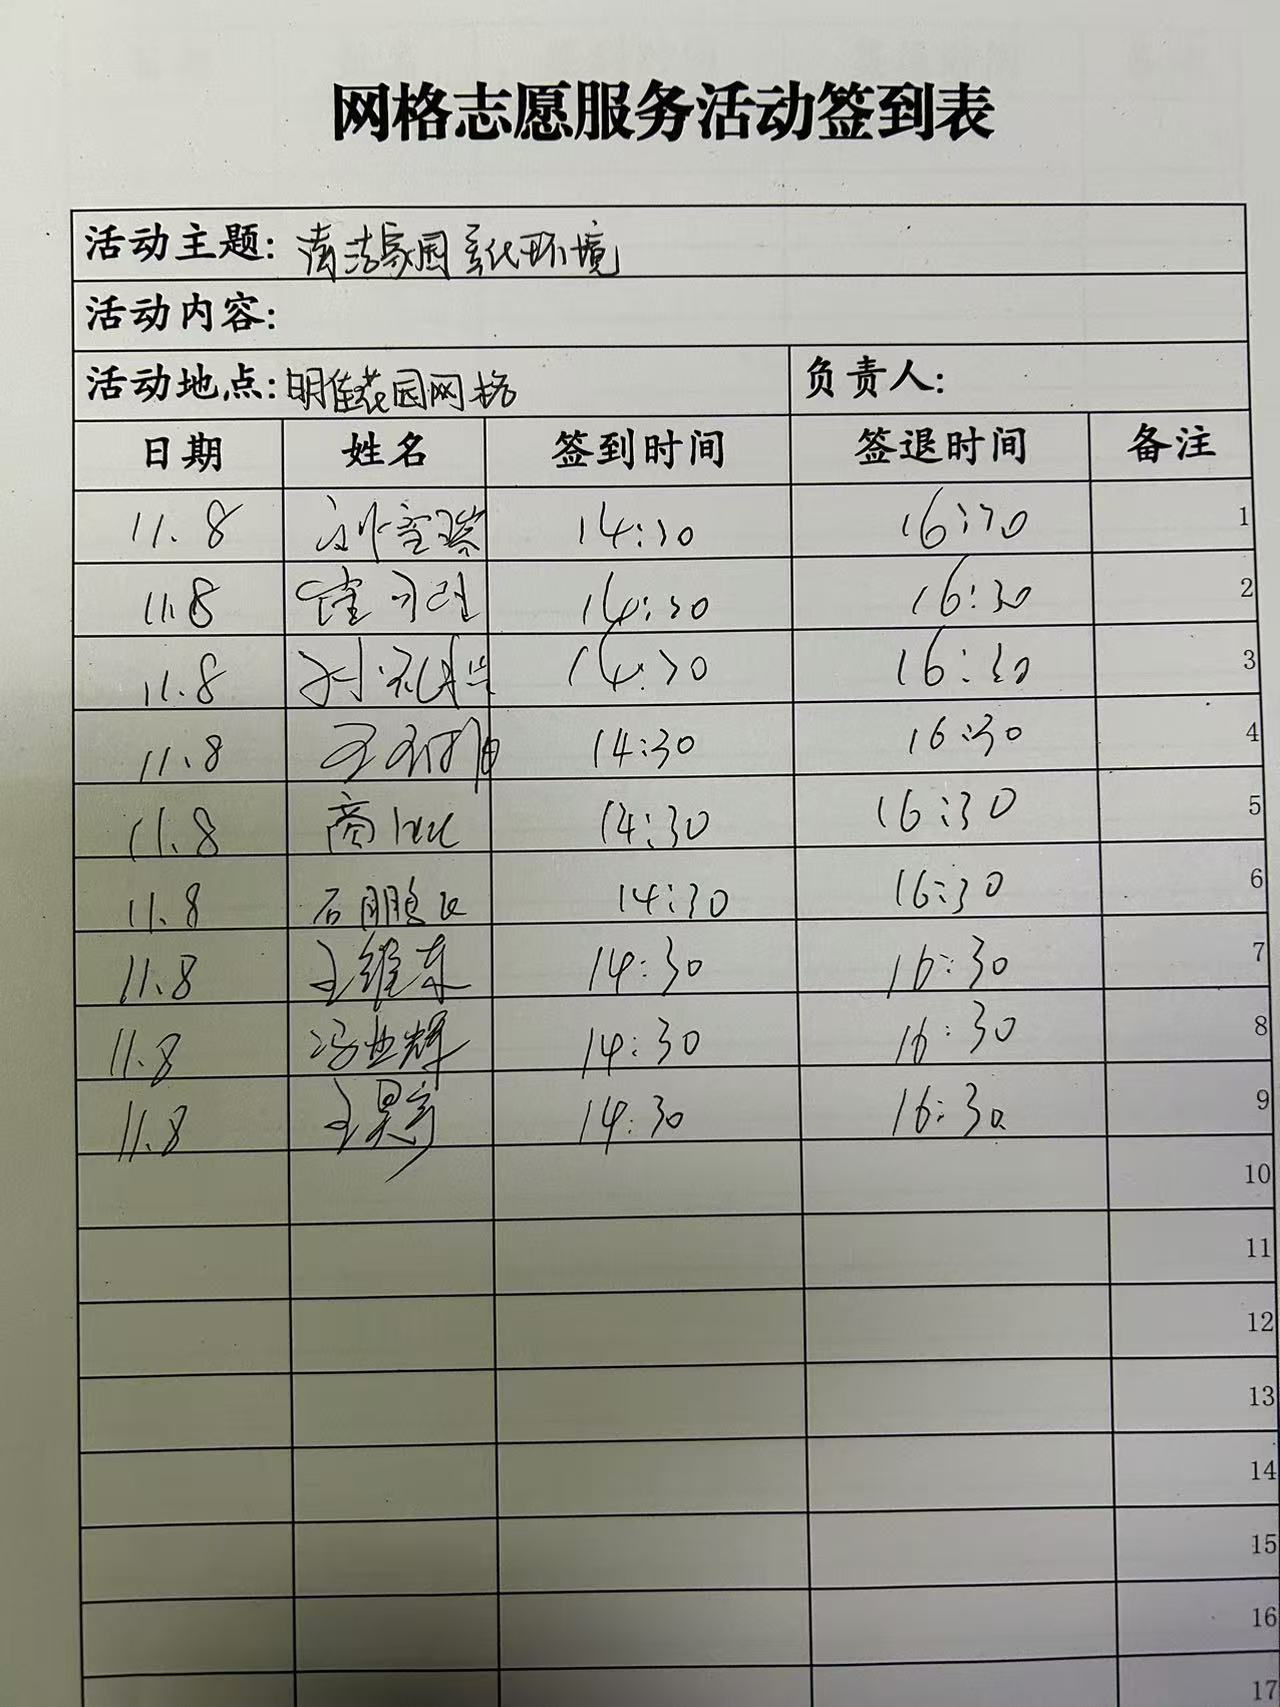 网格志愿服务活动签到表
活动主题: 清洁家园 美化环境
活动内容:
活动地点: 明佳花园网格 负责人:
日期 姓名 签到时间 签退时间 备注
11.8 14:30 16:30 1
11.8 14:30 16:30 2
11.8 14:30 16:30 3
11.8 王 14:30 16:30 4
11.8 商 14:30 16:30 5
11.8 石鹏飞 14:30 16:30 6
11.8 王维东 14:30 16:30 7
11.8 冯业辉 14:30 16:30 8
11.8 王昊宇 14:30 16:30 9
10
11
12
13
14
15
16
17